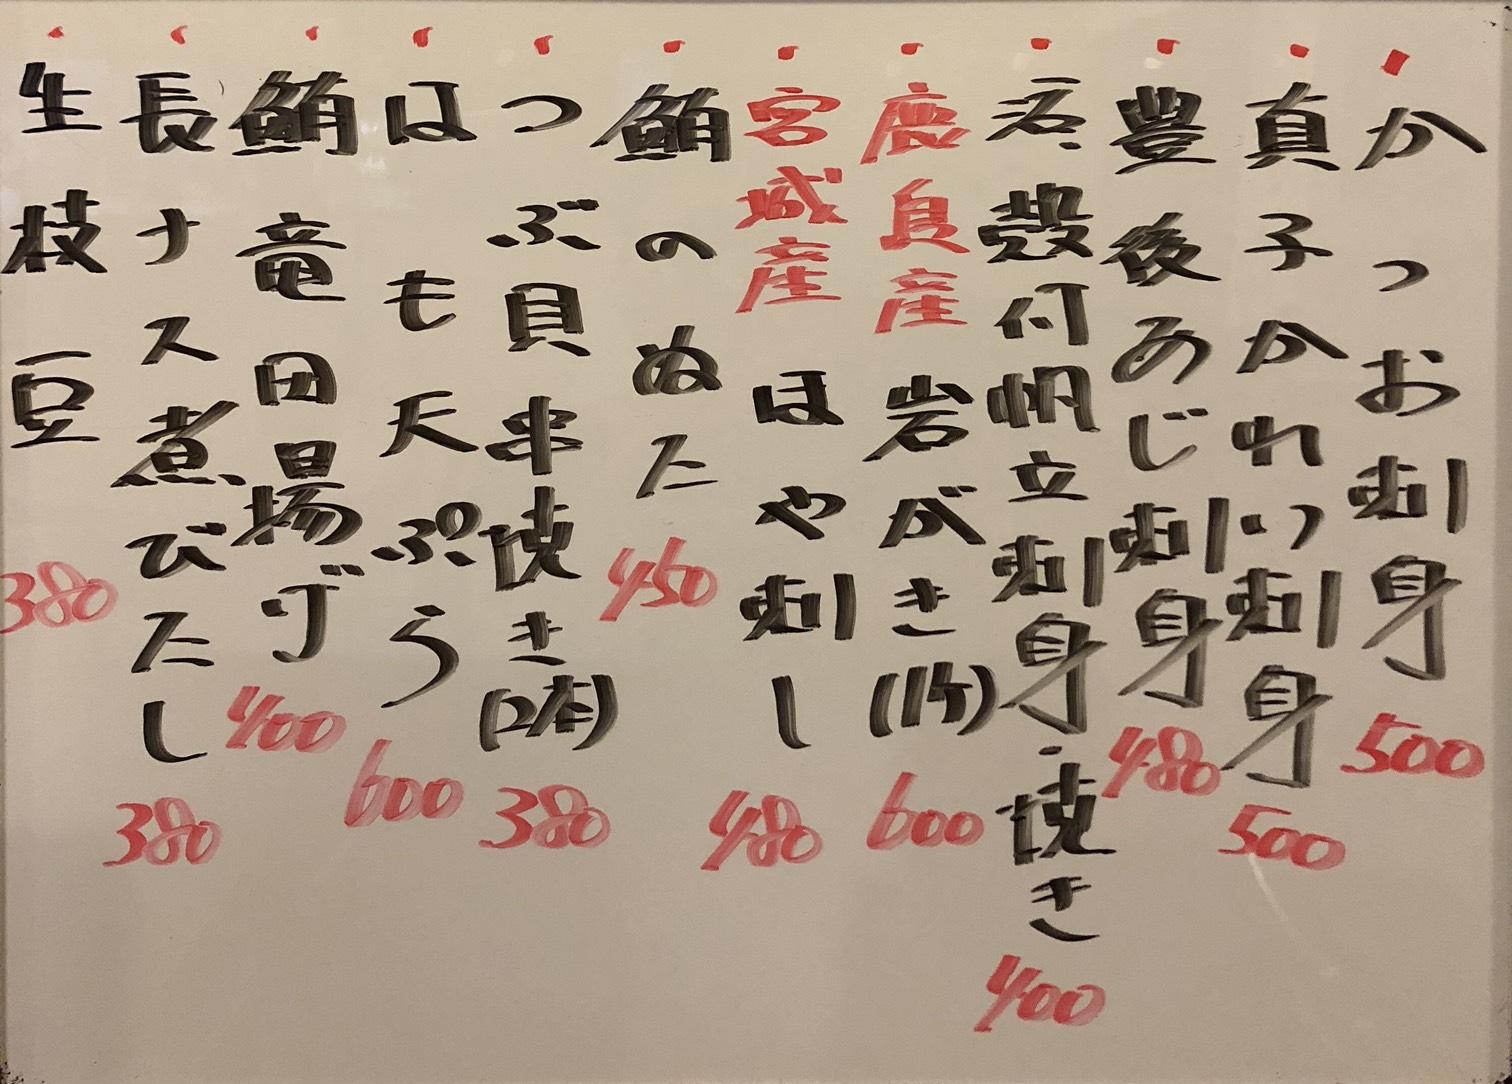 かつお刺身 500
真子かれい刺身 500
豊後あじ刺身 480
殻付帆立刺身・焼き 400
産岩がき(1ケ) 600
宮城産ほや刺し 480
鮪のぬた 450
つぶ貝串焼き(2本) 380
はも天ぷら 600
鮪竜田揚げ 400
長ナス煮びたし 380
生枝豆 380